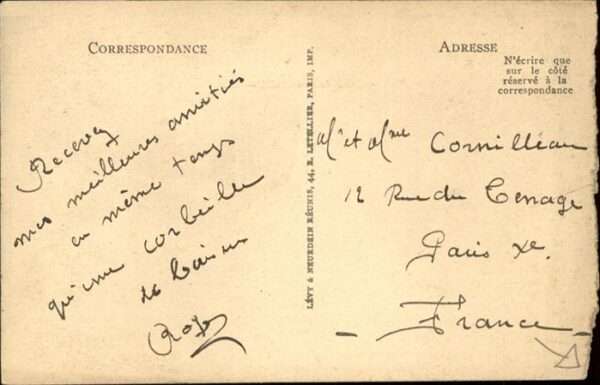 CORRESPONDANCE
Recevez
mes meilleures amitiés
en même temps
qu'une corbeille
de baisers
ADRESSE
N'écrire que
sur le côté
réservé à la
correspondance
LÉVY & NEURDEIN RÉUNIS, 44, R. LETELLIER, PARIS, IMP.
Mr et Mme Cornilleau
12 Rue du
Paris Xe.
— France —